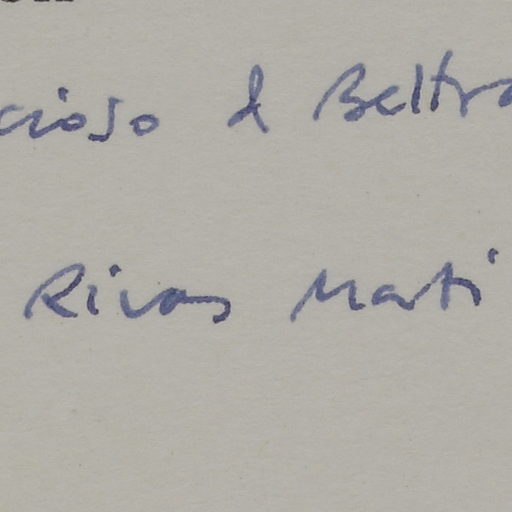 cioso & Beltra
Rivas Marti